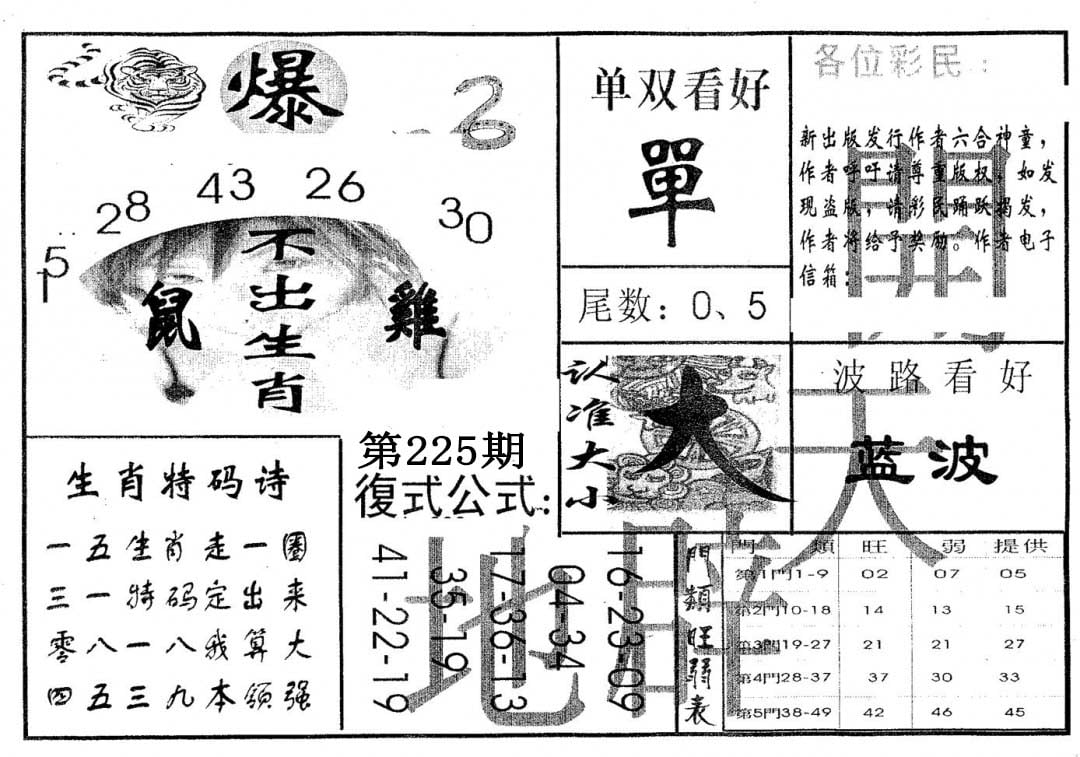 爆
2
15 28 43 26 30
不出生肖
鼠
雞
单双看好
單
尾数：0、5
各位彩民：
新出版发行作者六合神童，
作者呼吁请尊重版权，如发
现盗版，请彩民踊跃揭发，
作者将给予奖励。作者电子
信箱：
认准大小
大
波路看好
蓝波
生肖特码诗
一五生肖走一圈
三一特码定出来
零八一八我算大
四五三九本领强
第225期
復式公式：
16-23-09
04-34
17-36-13
35-19
41-22-19
門類旺弱表
門類 旺 弱 提供
第1門1-9 02 07 05
第2門10-18 14 13 15
第3門19-27 21 21 27
第4門28-37 37 30 33
第5門38-49 42 46 45